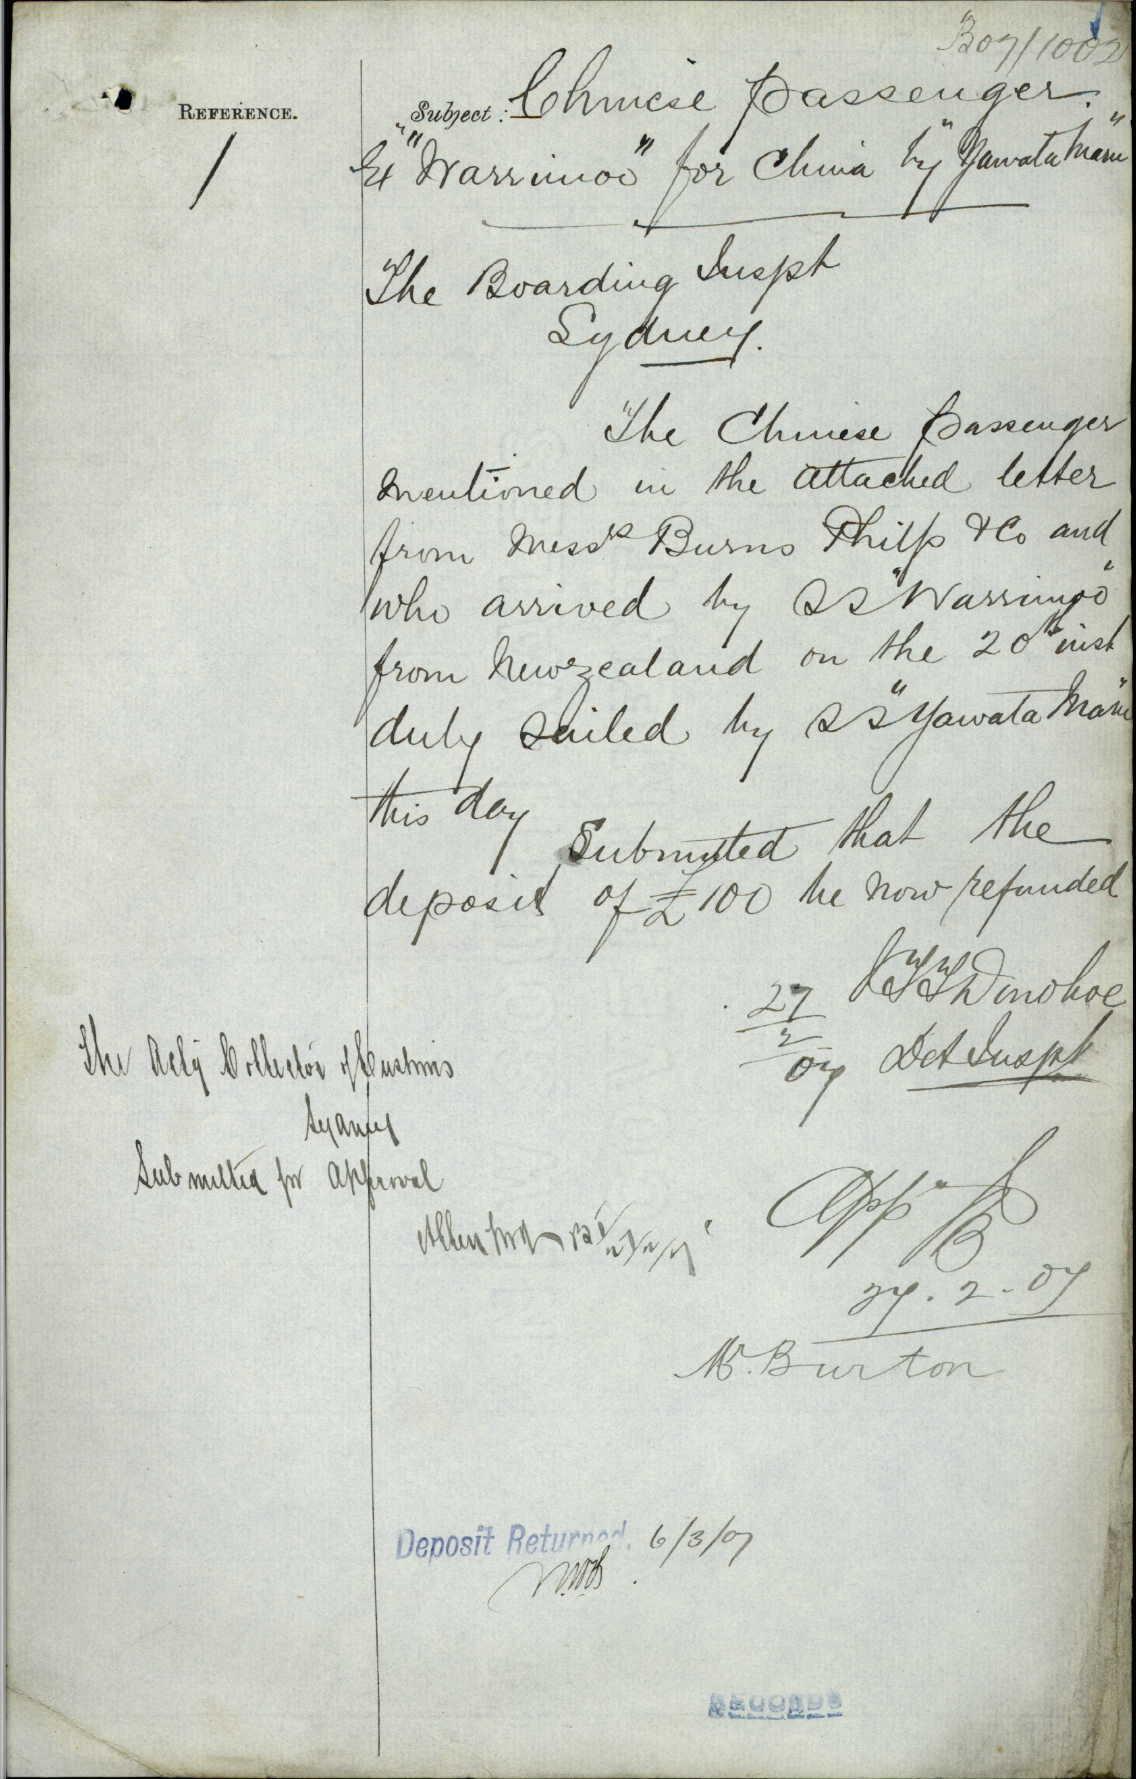 B07/1002
REFERENCE.
Subject: Chinese Passenger.
Ex "Warrimoo" for China by "Yawata Maru"
1
The Boarding Inspt
Sydney.
The Chinese passenger
mentioned in the attached letter
from Messrs Burns Philp & Co and
who arrived by SS "Warrimoo"
from Newzealand on the 20th inst
duly sailed by SS "Yawata Maru"
this day
Submitted that the
deposit of £100 be now refunded
Donohoe
27/2/07 Det Inspt
The Actg Collector of Customs
Sydney
Submitted for Approval
27/2/07
App
27.2.07
Mr. Burton
Deposit Returned. 6/3/07
RECORDS